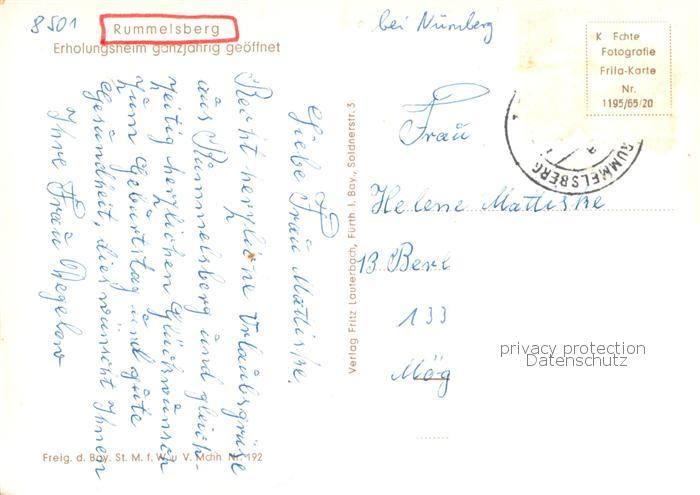 8501
Rummelsberg
bei Nürnberg
Erholungsheim ganzjährig geöffnet
K Echte
Fotografie
Frila-Karte
Nr.
1195/65/20
RUMMELSBERG
Liebe Frau Mattiske.
Recht herzliche Urlaubsgrüße
aus Rummelsberg und gleich-
zeitig herzlichen Glückwunsch
zum Geburtstag und gute
Gesundheit, dies wünscht Ihnen
Ihre Frau Wegelow
Verlag Fritz Lauterbach, Fürth i. Bay., Soldnerstr. 3
Frau
Helene Mattiske
13 Berl
133
Mög
privacy protection
Datenschutz
Freig. d. Bay. St. M. f. W. u. V. Mchn Nr. 192